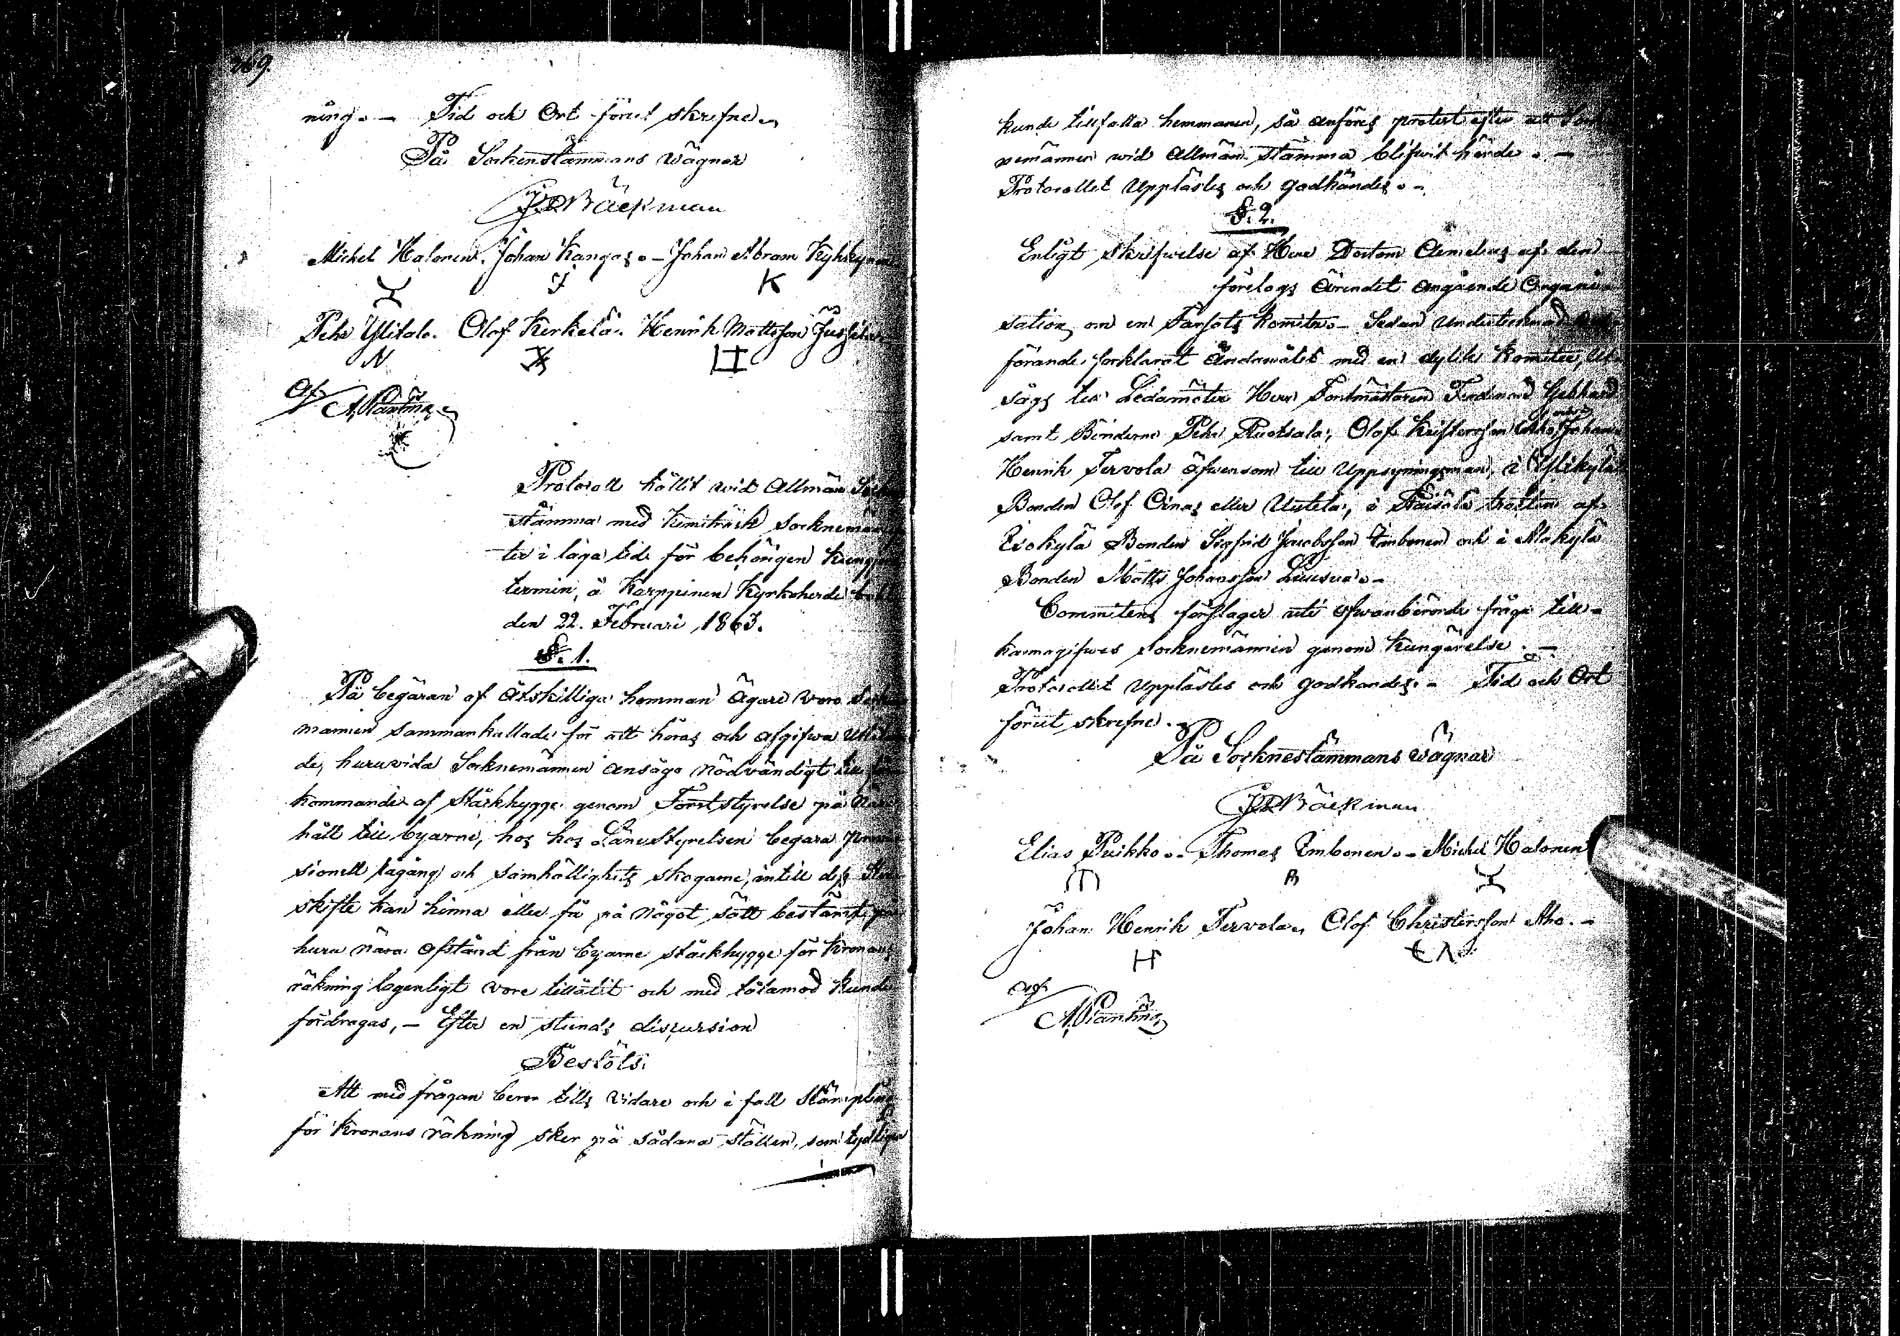 169.
ning. — Tid och Ort förut skrefne.
På Sockenstämmans Wägnar
Bäckman
Michel Halonen. Johan Kangas. — Johan Abram Kyhkynen
J K
Pehr Ylitalo. Olof Kerkelä. Henrik Mattsson Jus
N H
Af
Protocoll hållit wid Allmän
stämma med Kemiträsk Socknemän
ter i laga tid för behörigen
termin, å Karppinen Kyrkoherde
den 22. Februari 1863.
§. 1.
På begäran af Åtskilliga hemman Ägare voro
männen sammankallade för att höras och afgifwa
de, huruvida Socknemännen ansågo Nödvändigt
kommande af Stäckhygge genom Forststyrelse på
håll till byarne, hos hos Länestyrelsen begära
sionell rågång och samhällighets skogarne, intill dess
skifte kan hinna eller få på något sätt bestämt,
huru nära afstånd från byarne stäckhygge för Kronans
räkning lagenligt vore tillåtit och med tålamod kunde
fördragas, — Efter en stunds discursion
Beslöts.
Att med frågan beror tills vidare och i fall Stämpling
för Kronans räkning sker på sådana ställen, som tydligen
kunde tillfalla hemmanen, så anföres protest efter att
nemännen wid Allmän Stämma blifwit hörde. —
Protocollet Upplästes och godkändes. —
§. 2.
Enligt Skrifwelse af Herr Doctorn af den
förelogs Ärendet angående Organi
sation om en Farsots Komitee. — Sedan Undertecknad
förande förklarat Ändamålet med en dylik Komitee,
sågs till Ledamöter Herr Forstmästaren Ferdinand Gebhard
samt Bönderne Pehr Ruotsala, Olof Kristersson Aho Johan
Henrik Tervola äfwensom till Uppsyningsman, i Ylikylä
Bonden Olof Oinas eller Uutela, i Räisälä trakten af
Isokylä Bonden Sigfrid Jacobsson Imbonen och i Alakylä
Bonden Matts Johansson Luusua. —
Commiteens förslager uti ofwanberörde fråga till-
kännagifwes socknemännen genom Kungörelse. —
Protocollet Upplästes och godkändes. — Tid och Ort
förut skrefne.
På Socknestämmans Wägnar
Bäckman
Elias Puikko. — Thomas Imbonen. — Michel Halonen
Johan Henrik Tervola, Olof Christersson Aho. —
H